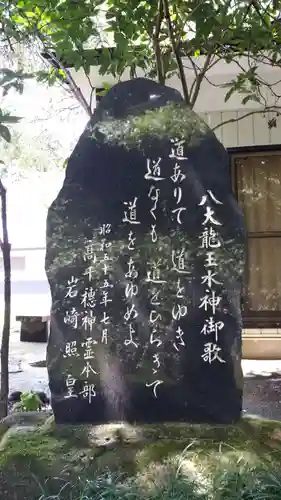 八大龍王水神御歌
道ありて 道とゆき
道なくも 道をひらきて
道をあゆめよ
昭和五十五年七月
高千穂神霊本部
岩崎照皇